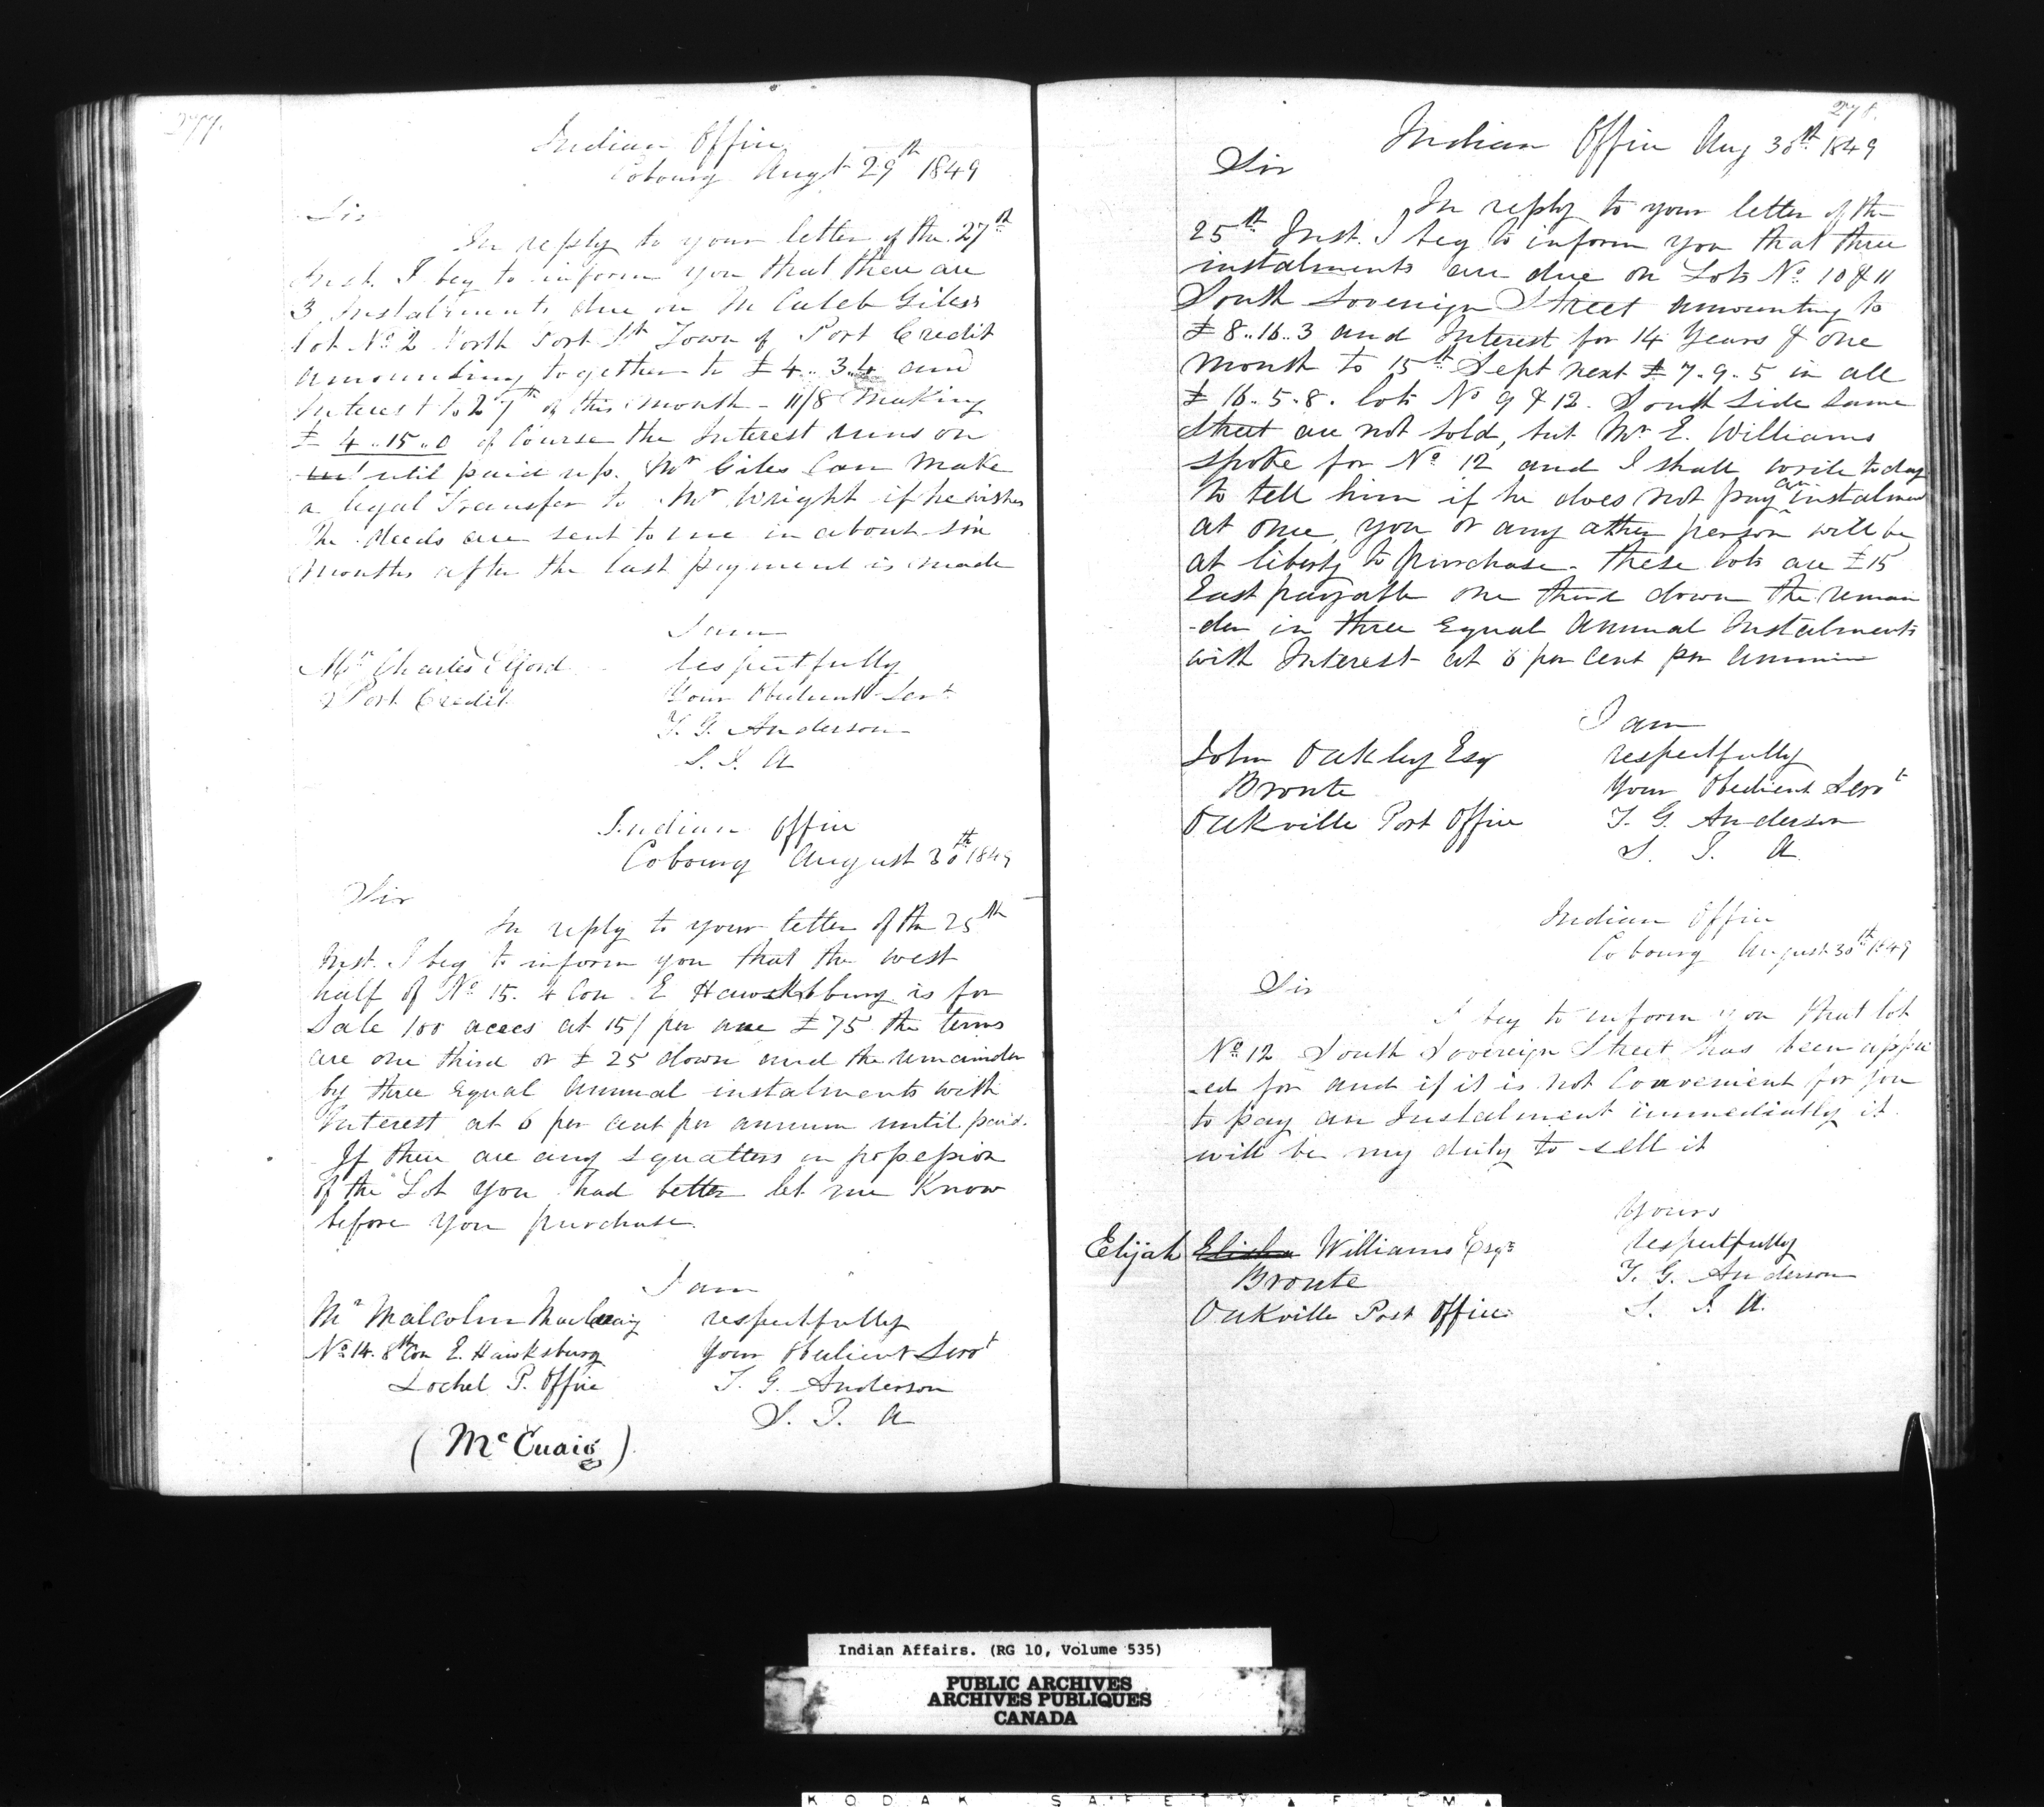 277.
Indian Office
Cobourg Augt 29th 1849
Sir
In reply to your letter of the 27th
Inst. I beg to inform you that there are
3 Instalments due on Mr Caleb Giles's
lot No 2 North Port St Town of Port Credit
amounting together to £4..3.4 and
Interest to 27th of this month - 11/8 Making
£4..15..0 of Course the Interest runs on
until paid up. Mr Giles Can Make
a legal Transfer to Mr Wright if he wishes
The deeds are sent to me in about six
months after the last payment is made
I am
respectfully
Your Obedient Servt
T. G. Anderson
S. I. A
Mr Charles Elford
Port Credit
Indian Office
Cobourg August 30th 1849
Sir
In reply to your letter of the 25th
Inst. I beg to inform you that the west
half of No 15. 4 Con E Hawksbury is for
Sale 100 acres at 15/ per acre £75 the terms
are one third or £25 down and the remainder
by three Equal Annual instalments with
Interest at 6 per cent per annum until paid.
If there are any squatters in possession
of the Lot you had better let me Know
before you purchase.
I am
respectfully
Your Obedient Servt
T. G. Anderson
S. I. A
Mr Malcolm
No 14. 8th Con E. Hawksburg
Lochel P. Office
(McCuaig)
278.
Indian Office Aug 30th 1849
Sir
In reply to your letter of the
25th Inst. I beg to inform you that three
instalments are due on Lots No 10 & 11
South Sovereign Street amounting to
£8..16..3 and Interest for 14 Years & one
month to 15th Sept next £7.9.5 in all
£16.5.8. lots No 9 & 12. South Side Same
Street are not sold, but Mr E. Williams
spoke for No 12 and I shall write today
to tell him if he does not pay an instalment
at once, you or any other person will be
at liberty to purchase. these lots are £15
Each payable one third down the remain
-der in three Equal Annual Instalments
with Interest at 6 per Cent per Annum
I am
respectfully
Your Obedient Servt
T. G. Anderson
S. I. A.
John Oakley Esq
Bronte
Oakville Post Office
Indian Office
Cobourg August 30th 1849
Sir
I beg to inform you that lot
No 12 South Sovereign Street has been appli
-ed for and if it is not Convenient for you
to pay an Instalment immediatly it
will be my duty to sell it
Yours
respectfully
T. G. Anderson
S. I. A.
Elijah Elisha Williams Esqr
Bronte
Oakville Post Office
Indian Affairs. (RG 10, Volume 535)
PUBLIC ARCHIVES
ARCHIVES PUBLIQUES
CANADA
KODAK SAFETY ▲ FILM ▲